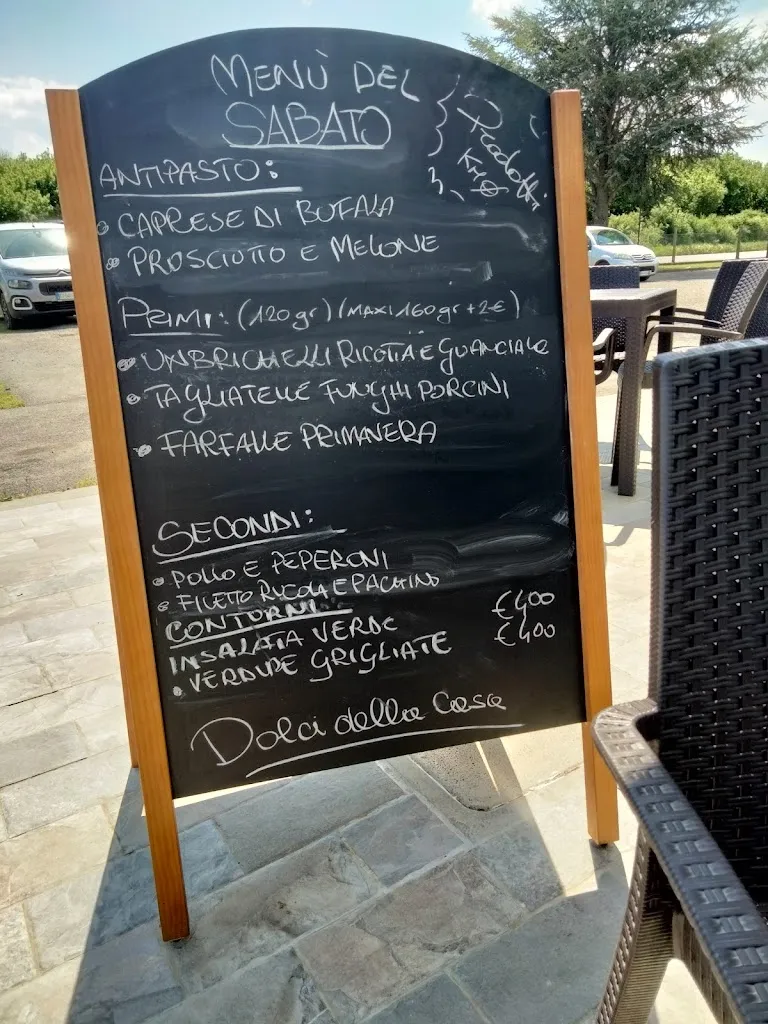 MENÙ DEL
SABATO
Prodotti
Km 0
ANTIPASTO:
• CAPRESE DI BUFALA
• PROSCIUTTO E MELONE
PRIMI: (120gr) (MAXI 160gr +2€)
• UNBRICHELLI RICOTTA E GUANCIALE
• TAGLIATELLE FUNGHI PORCINI
• FARFALLE PRIMAVERA
SECONDI:
• POLLO E PEPERONI
• FILETTO RUCOLA E PACHINO
CONTORNI
INSALATA VERDE €4,00
• VERDURE GRIGLIATE €4,00
Dolci della Casa